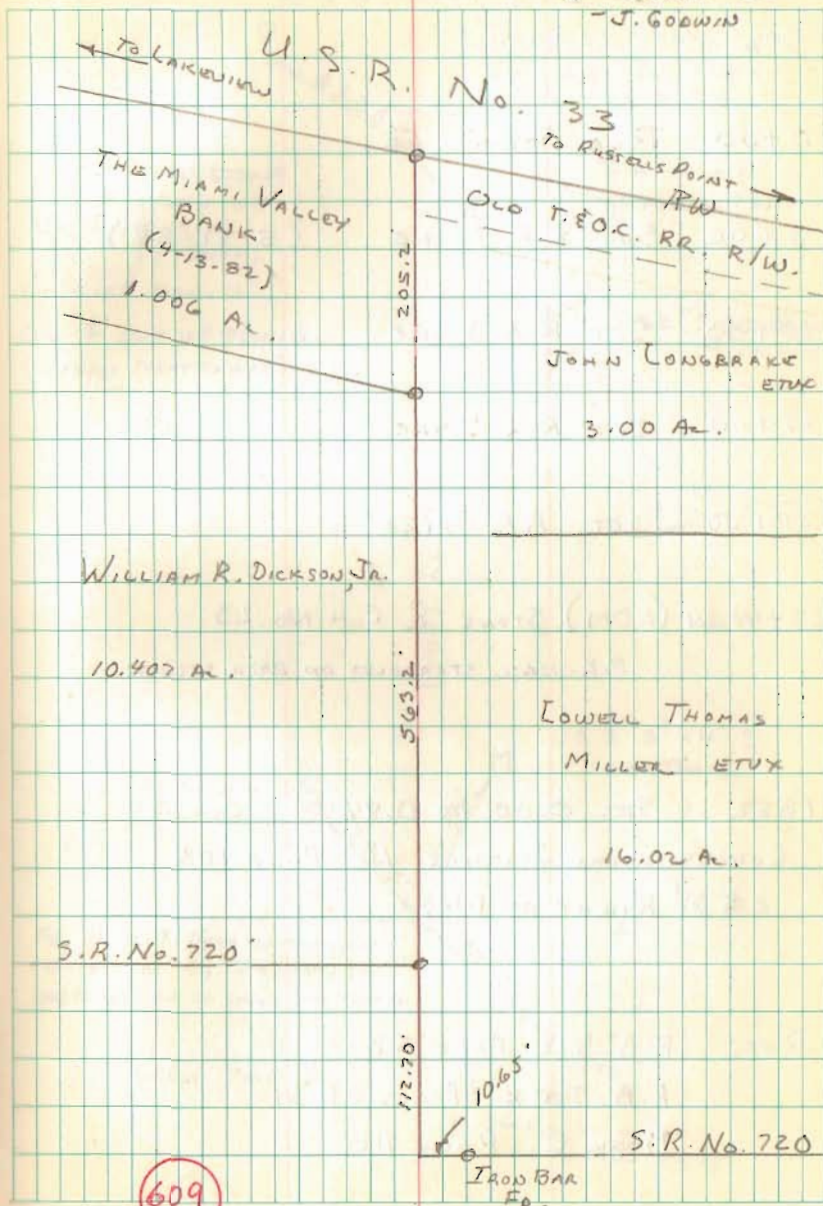 -J. GODWIN
TO LAKEVIEW
U.S.R. No. 33
TO RUSSELLS POINT
R/W
OLD T.&O.C. RR. R/W.
THE MIAMI VALLEY
BANK
(4-13-82)
1.006 AC.
205.2
JOHN LONGBRAKE
ETUX
3.00 AC.
WILLIAM R. DICKSON, JR.
10.407 AC.
563.2'
LOWELL THOMAS
MILLER ETUX
16.02 AC.
S.R. No. 720
112.70'
10.65'
S.R. No. 720
IRON BAR
FD.
609